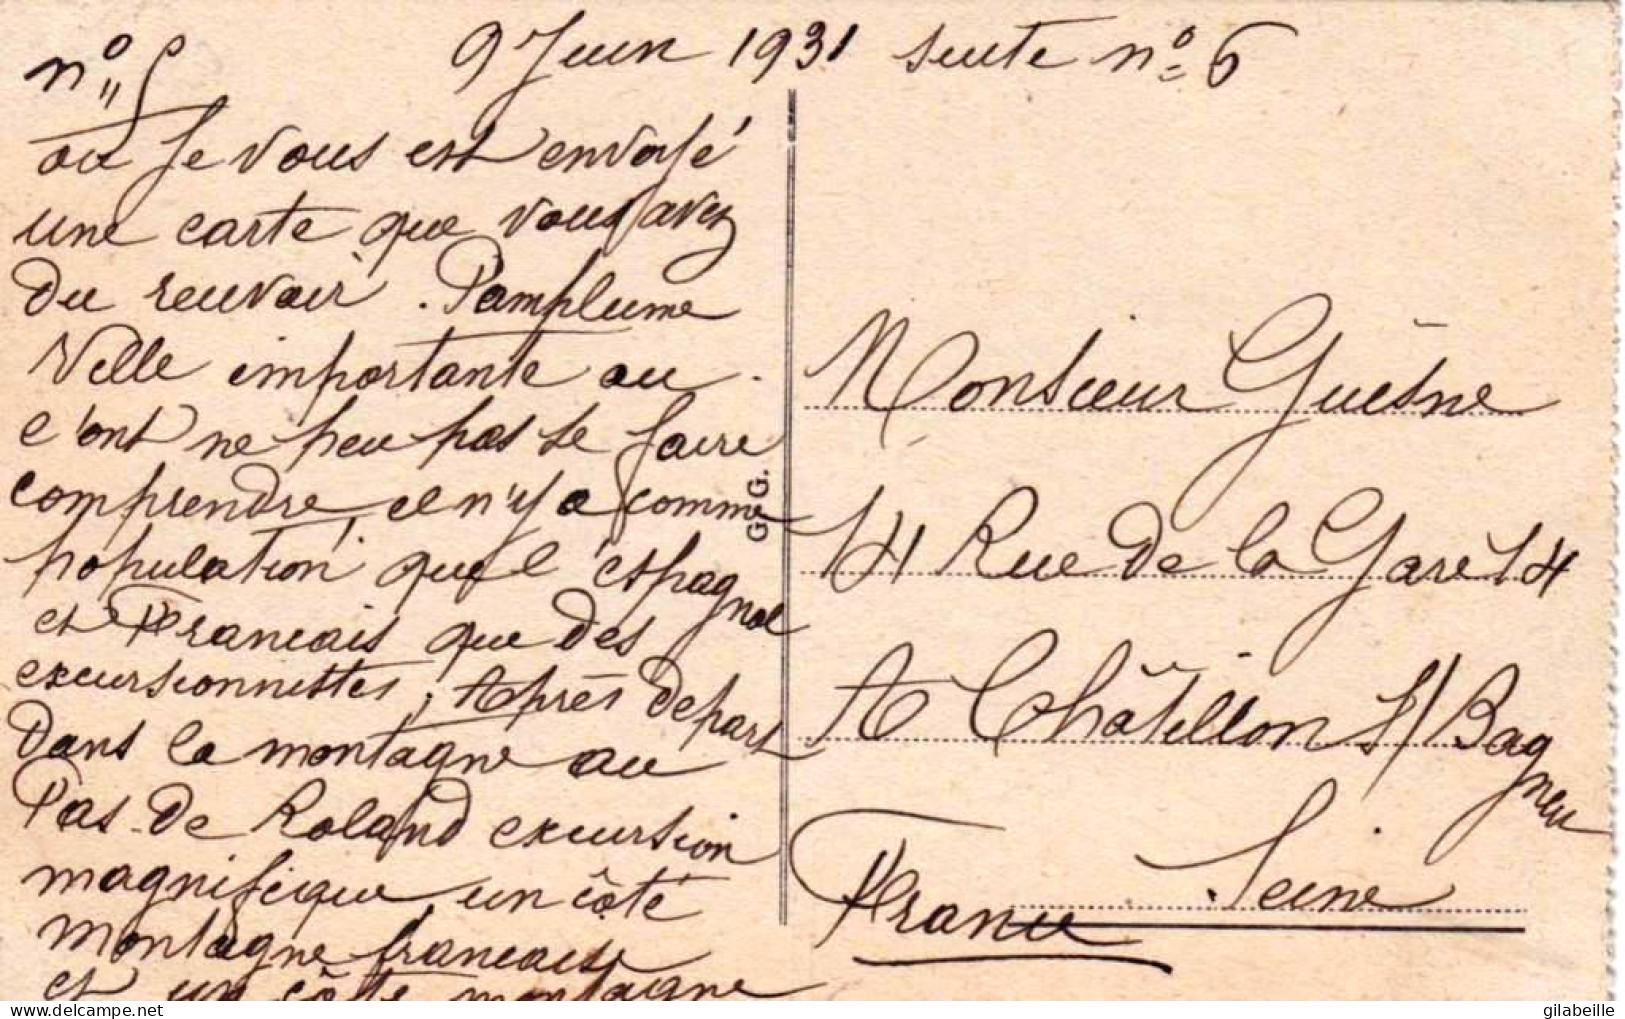 n° 5 9 Juin 1931 suite n° 6
ou Je vous est envoyé
une carte que vous avez
du reuvoir. Pamplume
Ville importante ou
c'ont ne peu pas se faire
comprendre, il n'y a comme
population que l'éspagnol
et Francais que des
excursionnistes, Après depart
dans la montagne au
Pas-de Roland excursion
magnifique, un côté
montagne francaise
et un côté montagne
G. G.
Monsieur Guèsne
14 Rue de la Gare 14
A Châtillon s/ Bagneu
Seine
France
gilabeille